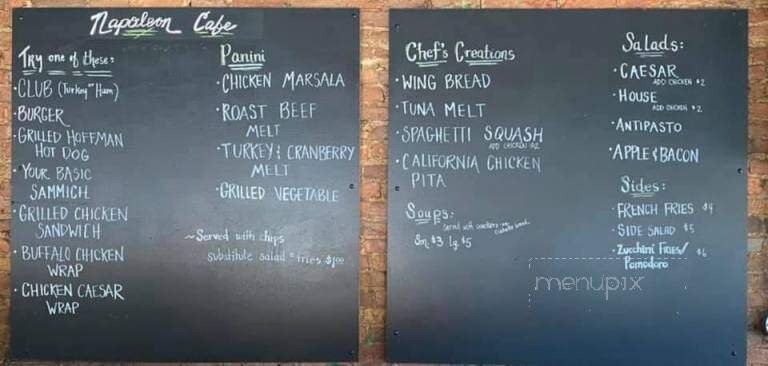 Napoleon Cafe
Try one of these:
• CLUB (Turkey or Ham)
• BURGER
• GRILLED HOFFMAN
HOT DOG
• YOUR BASIC
SAMMICH
• GRILLED CHICKEN
SANDWICH
• BUFFALO CHICKEN
WRAP
• CHICKEN CAESAR
WRAP
Panini
• CHICKEN MARSALA
• ROAST BEEF
MELT
• TURKEY & CRANBERRY
MELT
• GRILLED VEGETABLE
~Served with chips
substitute salad or fries $1.00
Chef's Creations
• WING BREAD
• TUNA MELT
• SPAGHETTI SQUASH
ADD CHICKEN $2
• CALIFORNIA CHICKEN
PITA
Soups:
Served with crackers or
Sm. $3 lg. $5
Salads:
• CAESAR
ADD CHICKEN $2
• HOUSE
ADD CHICKEN $2
• ANTIPASTO
• APPLE & BACON
Sides:
• FRENCH FRIES $4
• SIDE SALAD $5
• Zucchini Fries/ $6
Pomodoro
menupix